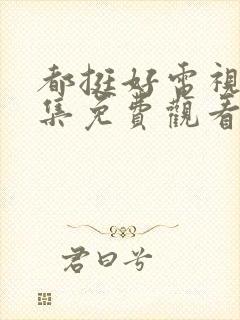 都挺好電視
集免費觀看
君曰兮